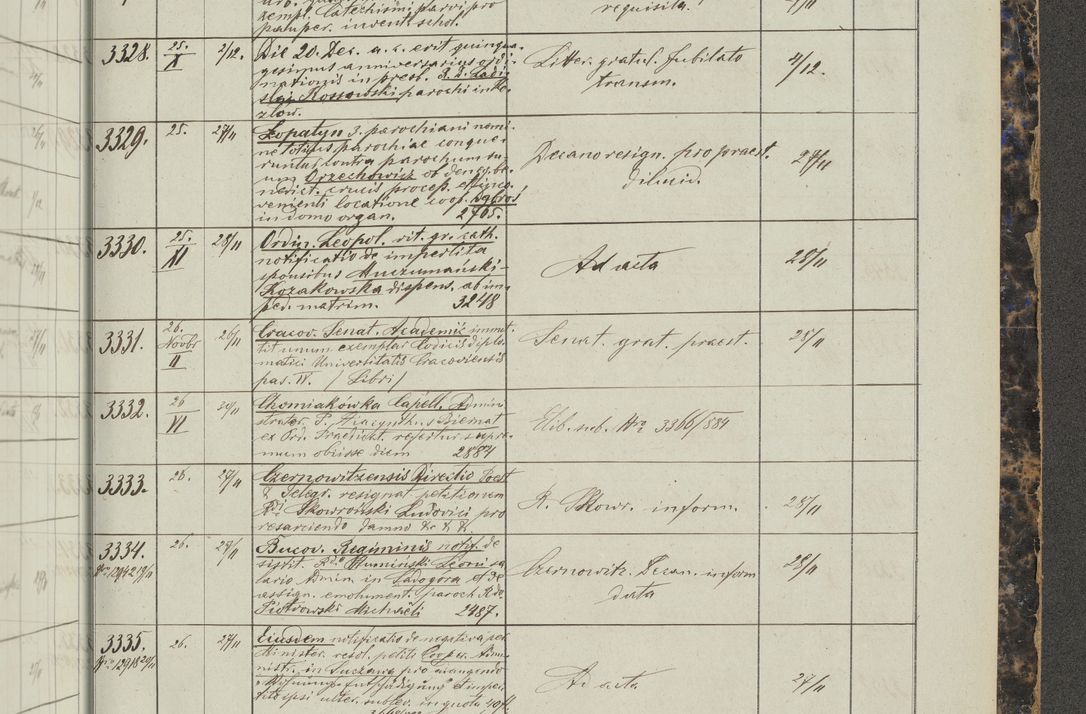 zempl. Catechismi parvi pro
pauper. invent. schol.
requisita.
3328.
25.
X
2/12.
Die 20. Dec. a. c. erit quinqua-
gesimus anniversarius ordi-
nationis in presb. R. D. Ladis-
lai Kossowski parochi in Ko-
złow.
Litter. gratul. Jubilato
transm.
4/12.
3329.
25.
27/11
Łopatyn 3. parochiani nomi-
ne totius parochiae conque-
runtur contra parochum su-
um Orzechowicz ob deneg. be-
nedict. crucis process. et inco-
venienti locatione coop.
in domo organ. 2765.
Decano resign. pro praest.
dilucid.
27/11
3330.
25.
XI
28/11
Ordin. Leopol. rit. gr. cath.
notificatio de impertita
sponsibus Muczumański-
Kozakowska dispens. ab im-
ped. matrim. 3248
Ad acta
28/11
3331.
26.
Novbr
II
26/11
Cracov. Senat. Academic. immit-
tit unum exemplar Codicis diplo-
matici Universitatis Cracoviensis
pas. IV. / Libri /
Senat. grat. praest.
28/11
3332.
26
VI
Chomiakówka Capell. Admini-
strator. P. Hiacynthus Biernat
ex Ord. Praedicat. refertur supre-
mum obiisse diem 2884
Elib. sub. Nro 3366/884
3333.
26.
27/11
Czernowitzensis Directio Post
& Telegr. resignat petitionem
Rdi Skowroński Ludovici pro
resarciendo damno &c &c &c.
R. Skowr. inform.
28/11
3334.
26.
27/11
Bucov. Regiminis notif. de
sistit. Rdo Rumiński Leoni sa-
lario Admin. in Sadogora et de
assign. emolument. paroch. Rdo
Piotrowski Michaeli 2487.
Czernowitz. Decan. inform
data
28/11
3335.
26.
27/11
Eiusdem notificatio de negativa per
Minister. resol. petiti Cooper. Admi-
nistr. in Suczawa pro
Ad acta
27/11